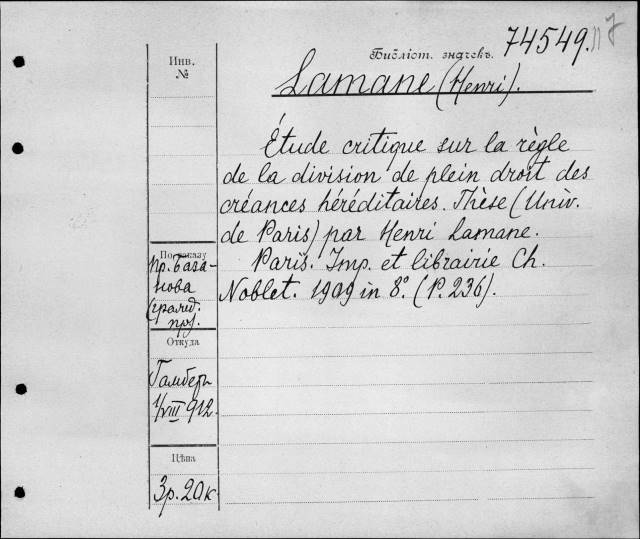 Библіот. значекъ. 74549.
Lamane (Henri).
Étude critique sur la règle
de la division de plein droit des
créances héréditaires. Thèse (Univ.
de Paris) par Henri Lamane.
Paris. Imp. et librairie Ch.
Noblet. 1909 in 8°. (P. 236).
Инв.
№
По заказу
пр. База-
нова
(гражд.
пр.).
Откуда
Гамберъ
1/VIII 912.
Цѣна
3 р. 20 к